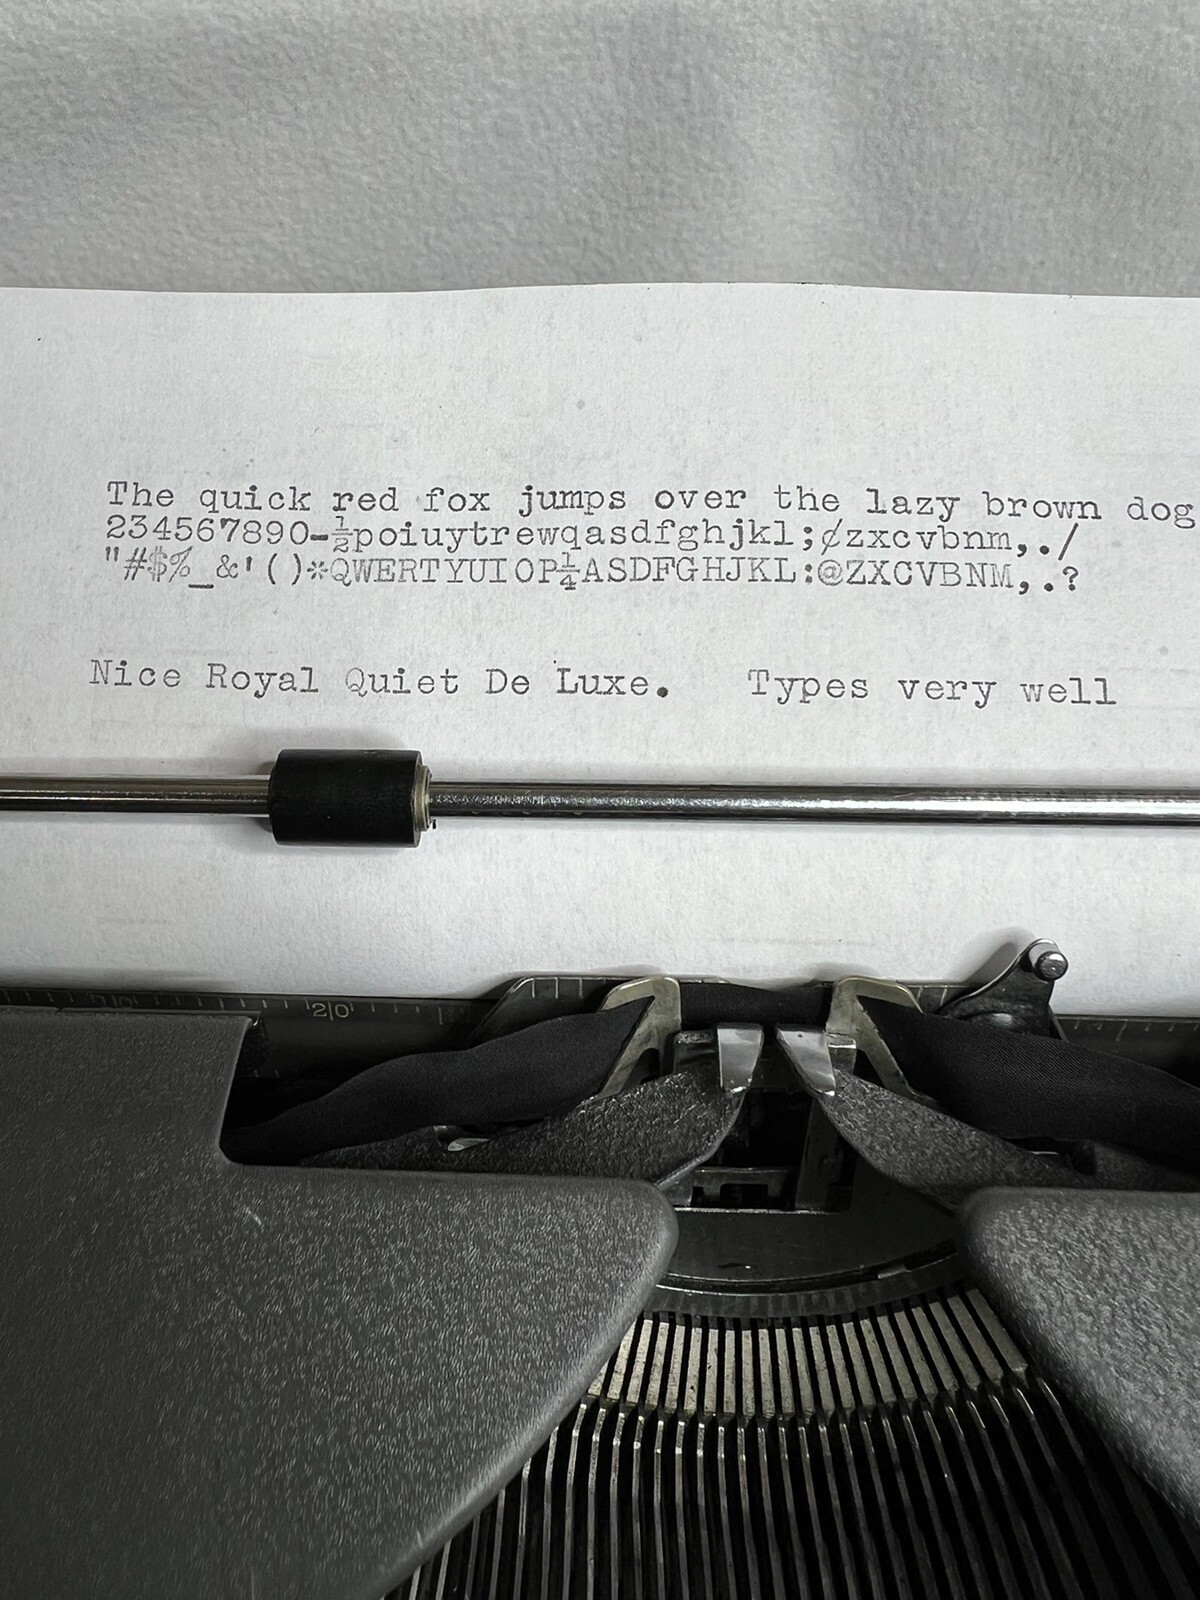 The quick red fox jumps over the lazy brown dog
234567890-½poiuytrewqasdfghjkl;¢zxcvbnm,./
"#$%_&'()*QWERTYUIOP¼ASDFGHJKL:@ZXCVBNM,.?
Nice Royal Quiet De Luxe.   Types very well
20